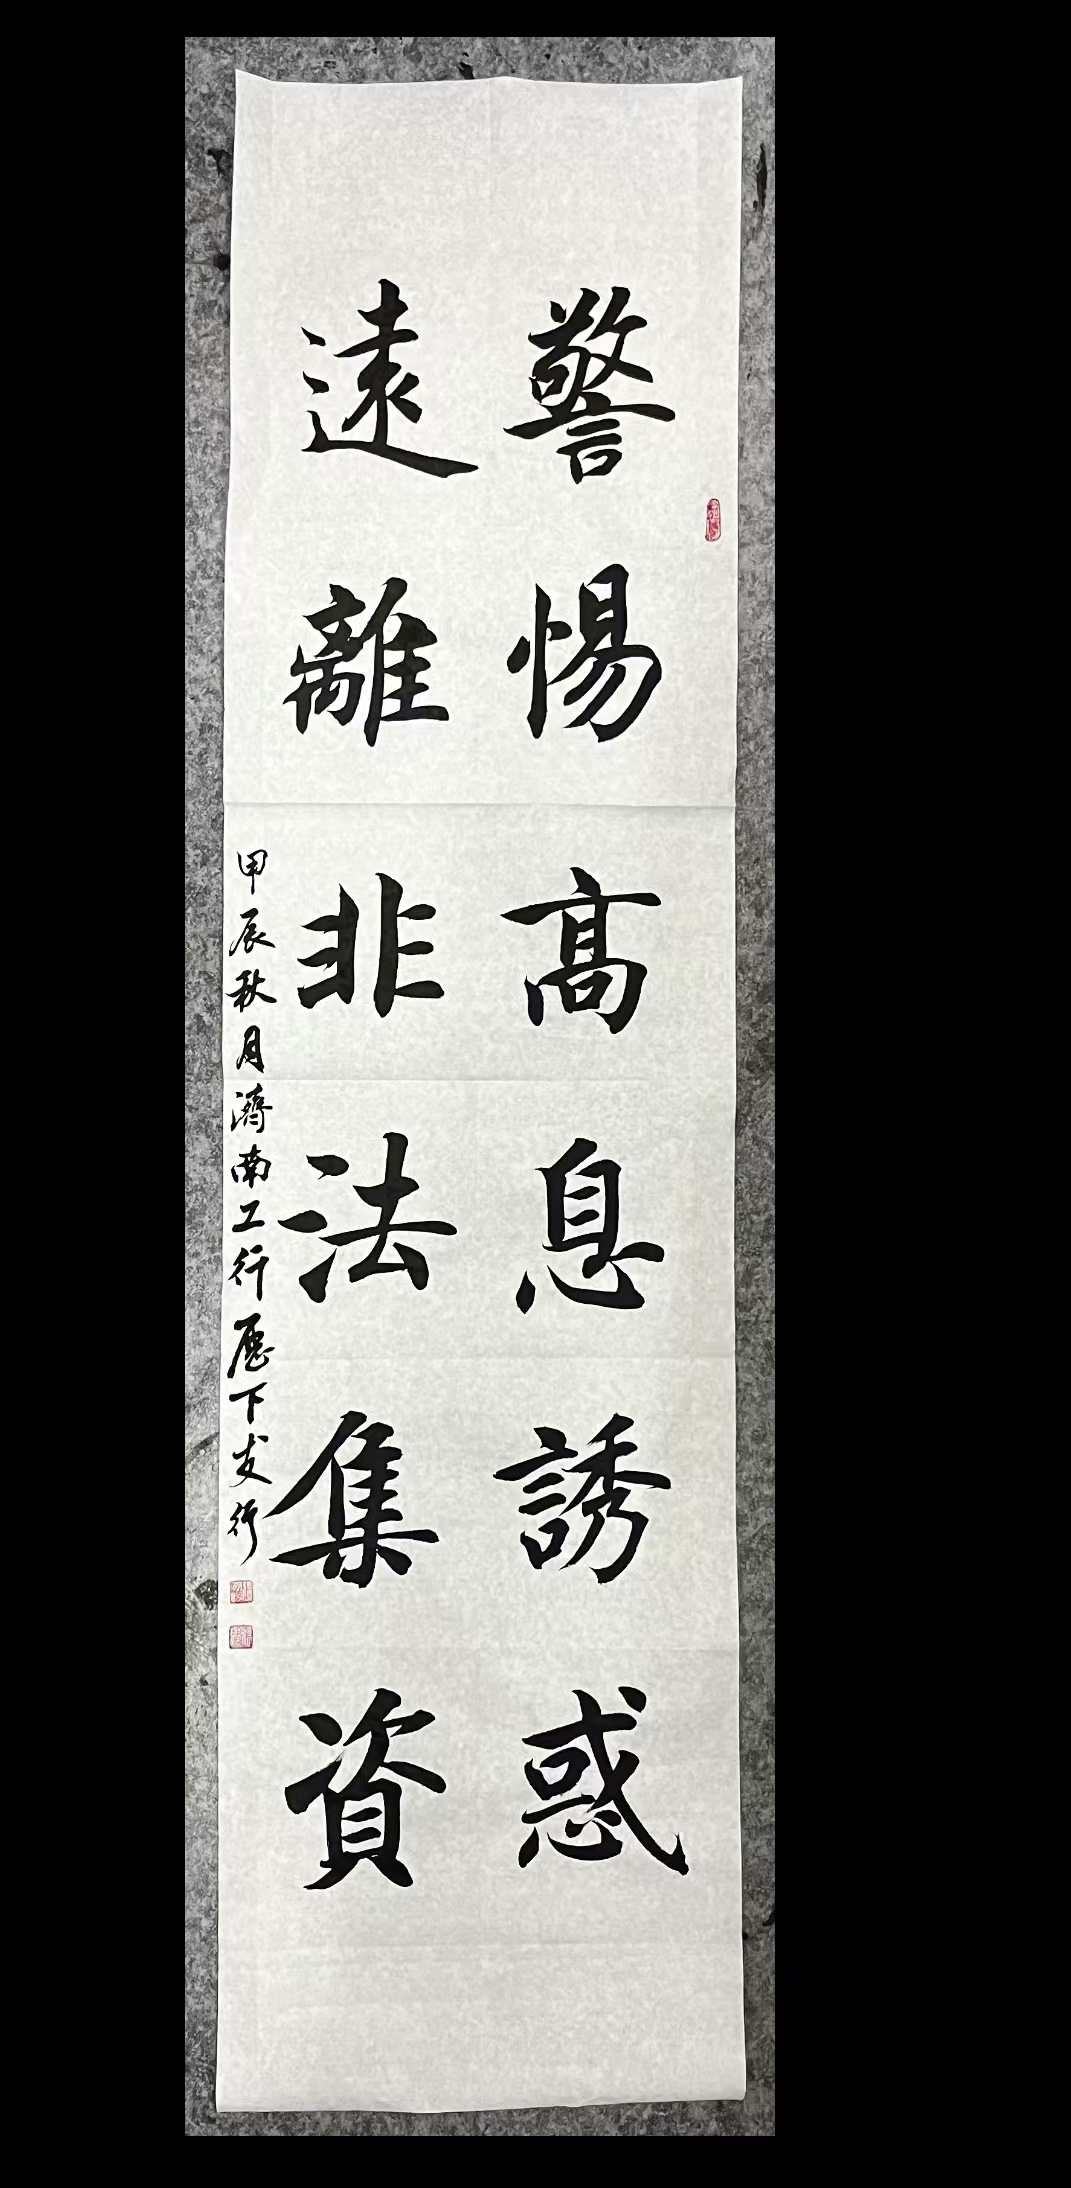 警惕高息誘惑
遠離非法集資
甲辰秋月濟南工行歷下支行